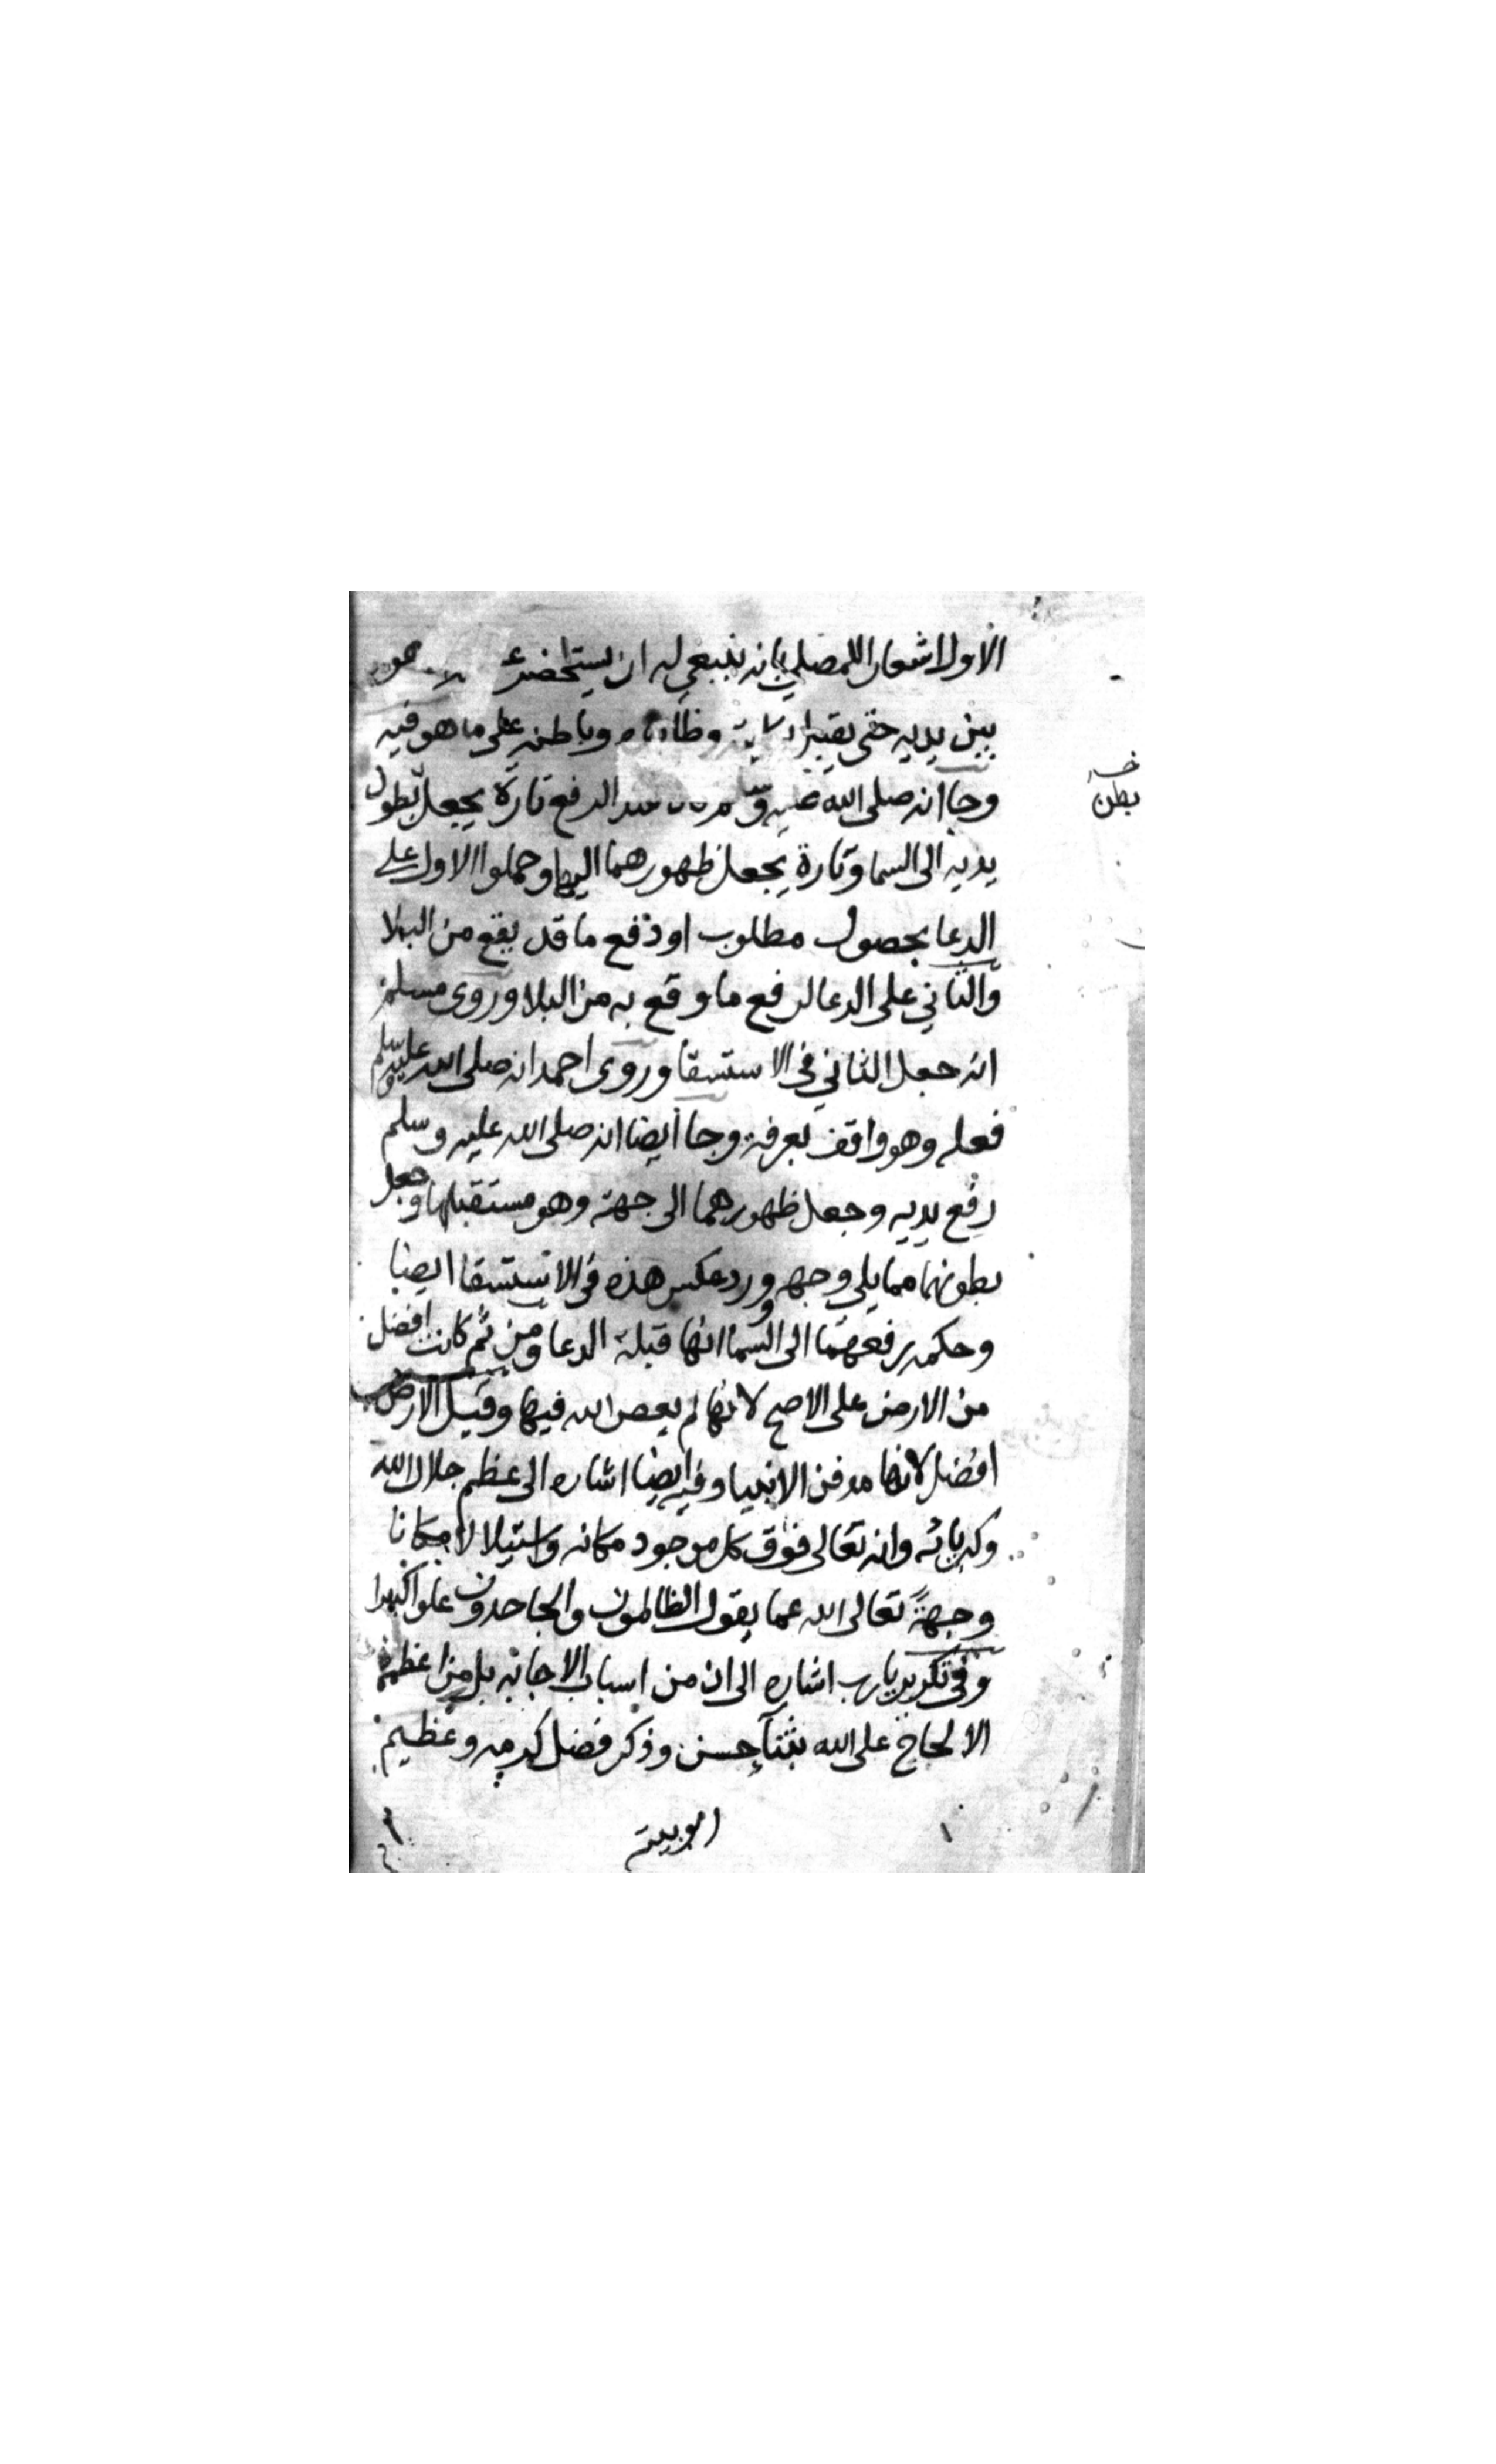 الاول اشعار اللمصلي بانه ينبغي له ان يستحضر
بين يديه حتى يقبل وباطنه على ما هو فيه
وجا انه صلى الله عليه وسلم الرفع تارة يجعل بطون
خـ
بطن
يديه الى السما وتارة يجعل ظهورهما اليها وحملوا الاول على
الدعا بحصول مطلوب او دفع ما قد يقع من البلا
والثاني على الدعا لرفع ما وقع به من البلا وروى مسلم
انه جعل الثاني في الاستسقا وروى احمد انه صلى الله عليه وسلم
فعله وهو واقف بعرفة وجا ايضا انه صلى الله عليه وسلم
رفع يديه وجعل ظهورهما الى جهته وهو مستقبلها وجعل
بطونهما مما يلي وجهه وورد عكس هذه في الاستسقا ايضا
وحكمه رفعهما الى السما انها قبلة الدعا ومن ثم كانت افضل
من الارض على الاصح لانها لم يعص الله فيها وقيل الارض
افضل لانها مدفن الانبيا وفيه ايضا اشاره الى عظم جلال الله
وكبريائه وانه تعالى فوق كل موجود مكانه واستيلا لا مكانا
وجهةً تعالى الله عما يقول الظالمون والجاحدون علوا كبيرا
وفي تكرير يارب اشاره الى ان من اسباب الاجابه بل من اعظمها
الالحاح على الله بثنآء حسن وذكر فضل كرمه وعظيم